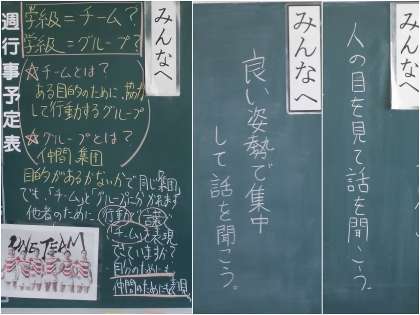 週行事予定表
みんなへ
学級=チーム?
学級=グループ?
☆チームとは?
ある目的のために、協力
して行動するグループ
☆グループとは?
仲間、集団
目的があるかないかで同じ「集団」
でも、「チーム」と「グループ」に分かれます
他者のために(行動)と(言葉)で
(チーム)を表現
できていますか?
自分のためにも
仲間のためにも
ONE TEAM
みんなへ
良い姿勢で集中
して話を聞こう。
みんなへ
人の目を見て話を聞こう。